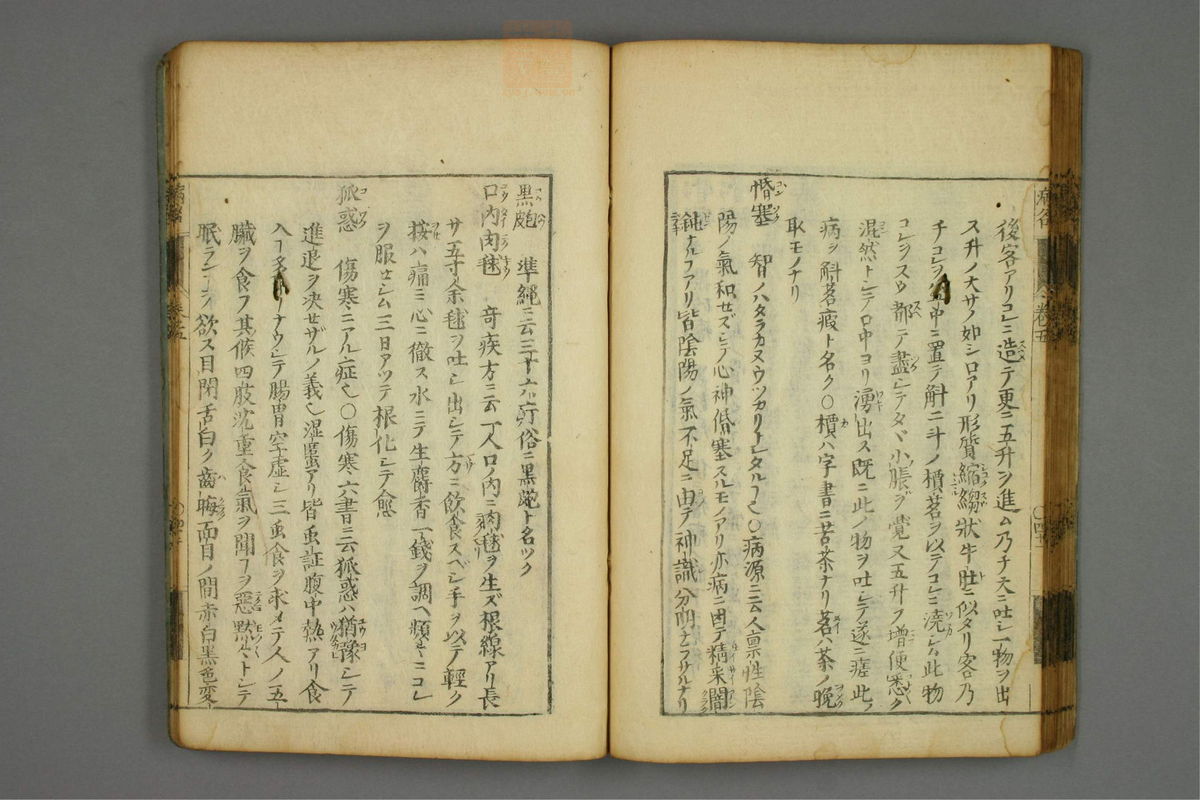 後客アリコレニ造テ更ニ五升ヲ進ム乃チ大ニ吐シ一物ヲ出
ス升ノ大サノ如シ口アリ形質縮縐狀牛肚ニ似タリ客乃
チコレヲ中ニ置テ斛二斗ノ檟茗ヲ以テコレニ澆シム此物
コレヲスウ都テ盡シテタヾ小脹ヲ覺又五升ヲ增便悉ク
混然トシテ口中ヨリ湧出ス既ニ此ノ物ヲ吐シテ遂ニ瘥此ノ
病ヲ斛茗瘕ト名ク〇檟ハ字書ニ苦茶ナリ茗ハ茶ノ晩
取モノナリ
惛塞 智ノハタラカヌウツカリトシタルヿ也〇病源ニ云人禀性陰
陽ノ氣和セズシテ心神惛塞スルモノアリ亦病ニ因テ精采闇
鈍ナルフアリ皆陰陽ノ氣不足ニ由テ神識分明ナラサルナリ
黑皰 準繩ニ云三十六疔俗ニ黑皰ト名ツク
口内肉毬 奇疾方ニ云一人口ノ内ニ肉毬ヲ生ズ根線アリ長
サ五寸余毬ヲ吐シ出シテ方ニ飲食スベシ手ヲ以テ輕ク
按ハ痛ミ心ニ徹ス水ニテ生麝香一錢ヲ調ヘ頻リニコレ
ヲ服セシム三日アツテ根化シテ愈
狐惑 傷寒ニアル症也〇傷寒六書ニ云狐惑ハ猶豫シテ
進退ヲ決セザルノ義也湿䘌アリ皆虫証腹中熱アリ食
入ヿナウシテ腸胃空虚シ三虫食ヲ求メテ人ノ五
臟ヲ食フ其候四肢沈重食氣ヲ聞フヲ惡黙々トシテ
眠ラン欲ス目閉舌白ク齒晦面目ノ間赤白黑色変